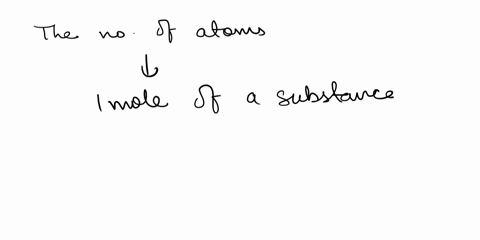 The no. of atoms
↓
1 mole of a substance